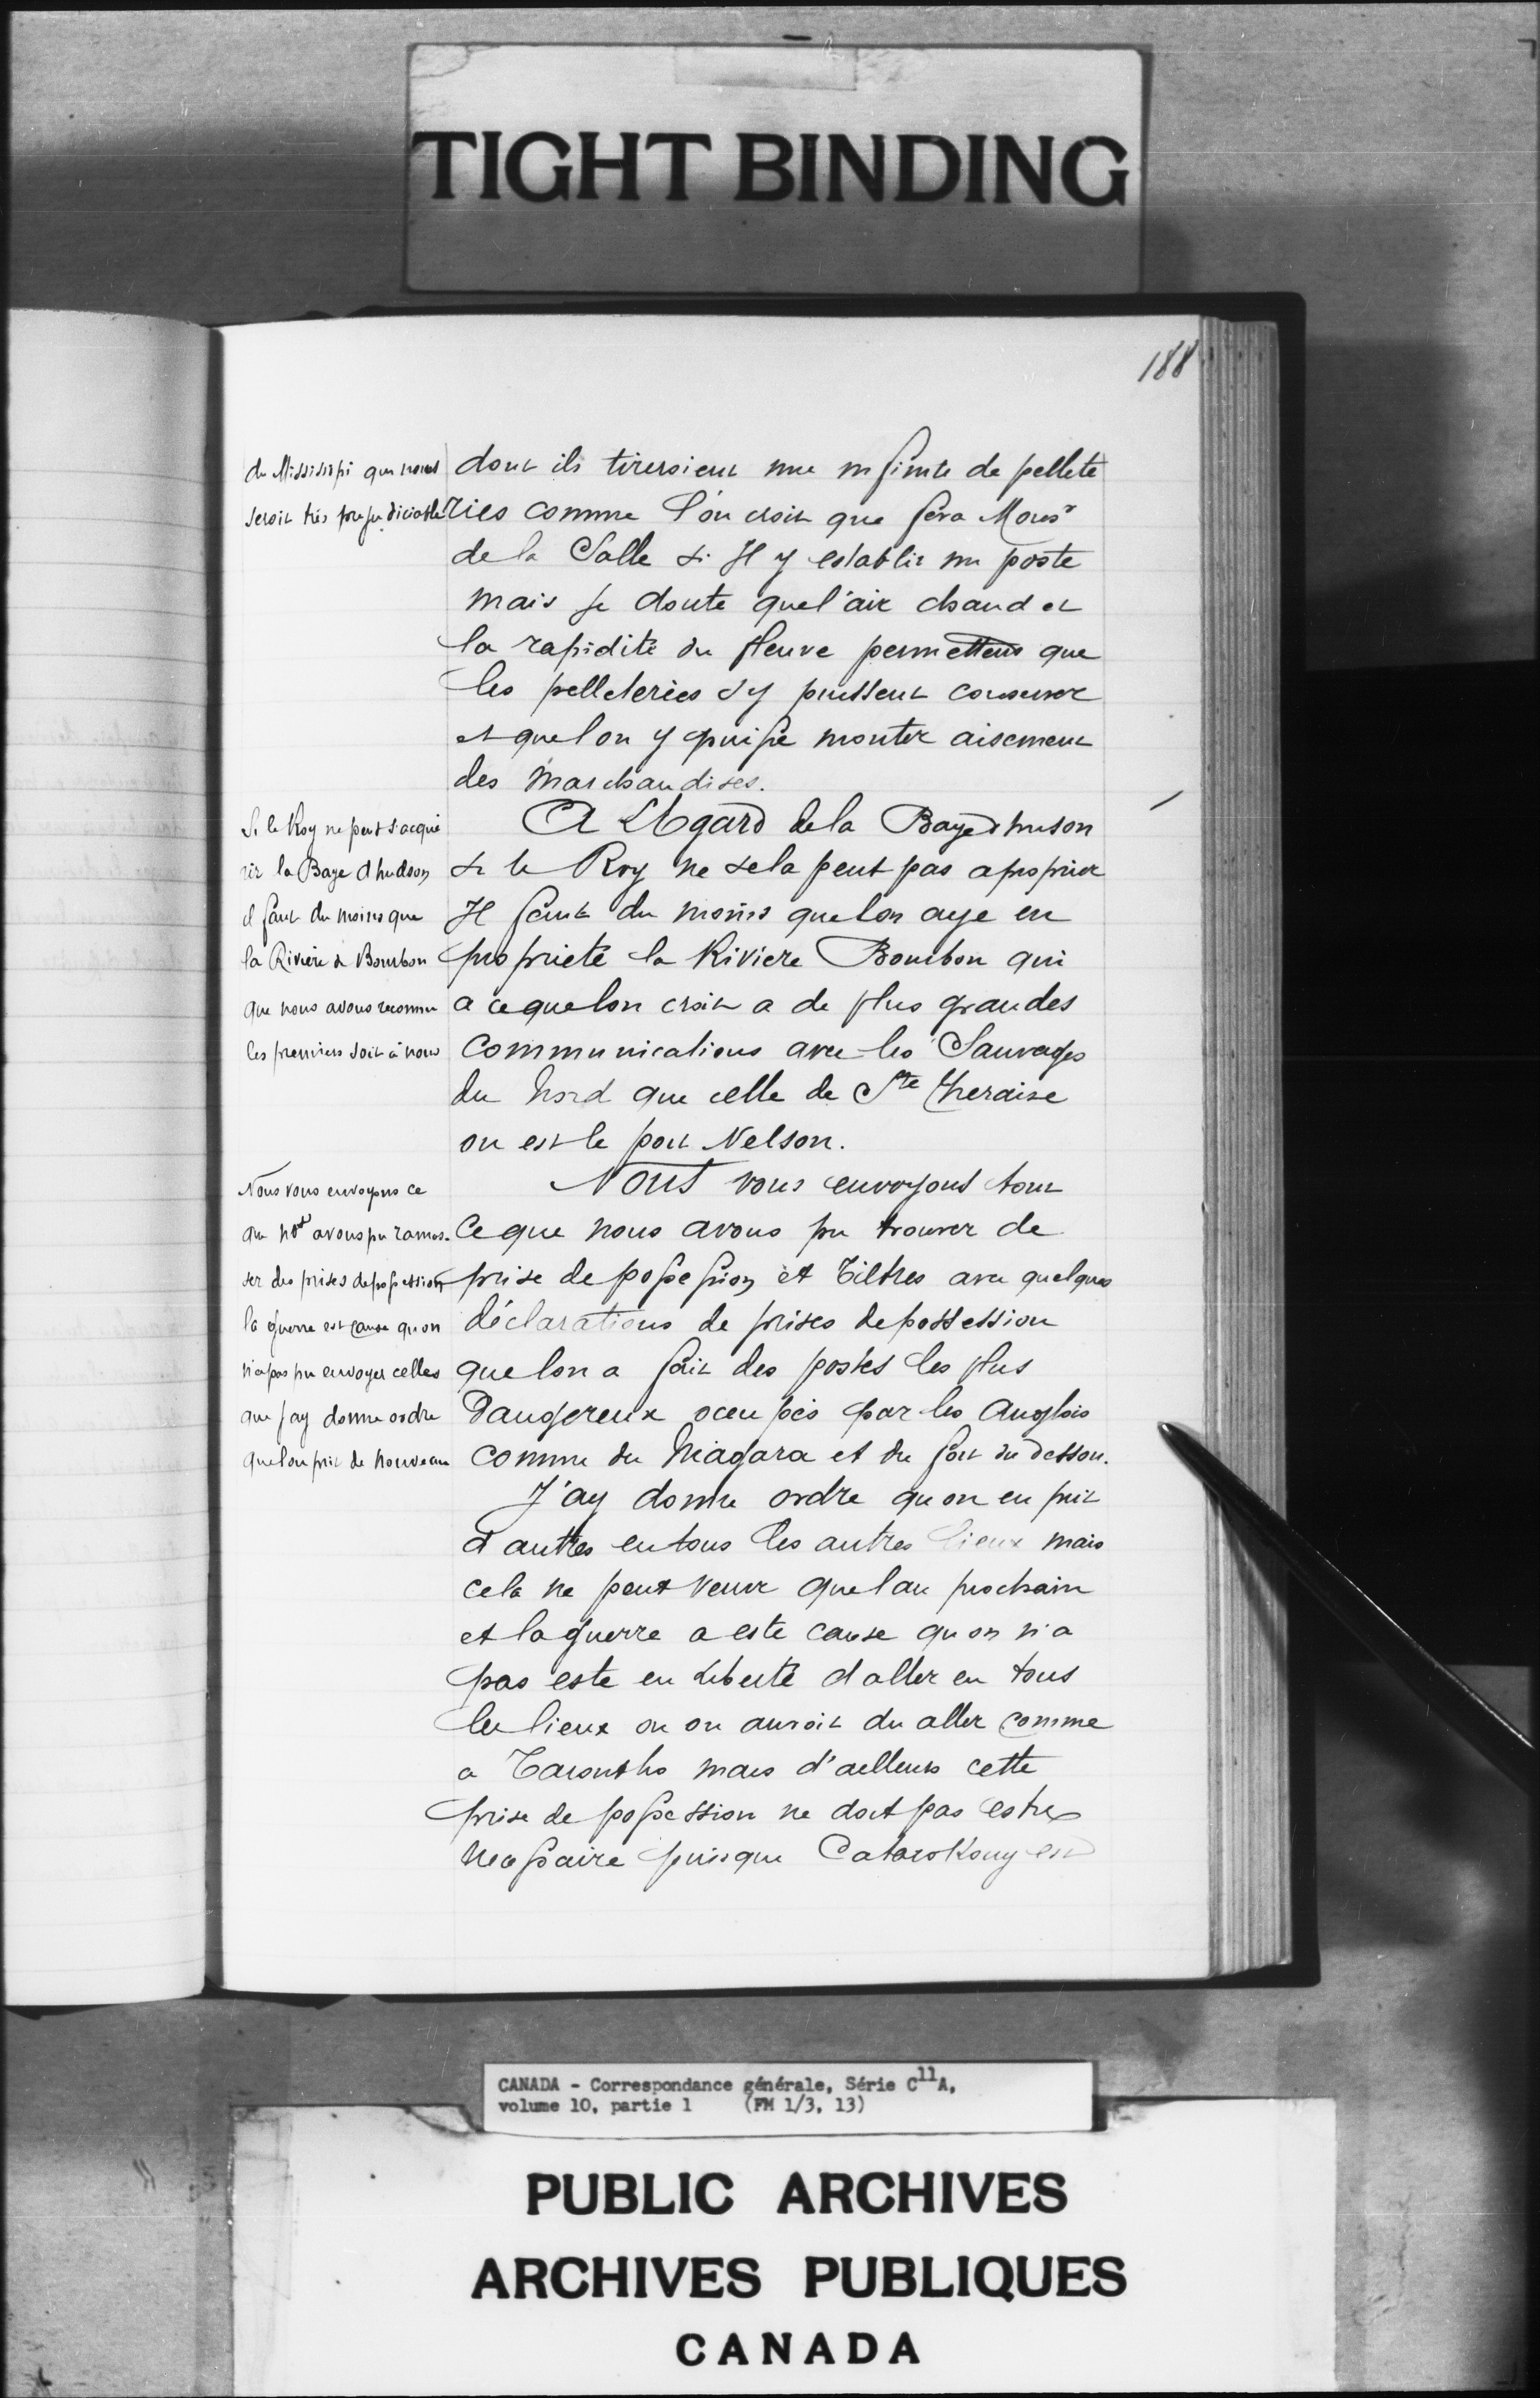 TIGHT BINDING
188
du Mississipi qui nous
seroit très préjudiciable
dont ils tireroient une infinité de pellete
ries comme l'on croit que fera Monsr
de la Salle si Il y establit un poste
mais je doute quel'air chaud et
la rapidité du fleuve permettent que
les pelleteries s'y puissent conserver
et quel on y puisse monter aisement
des marchandises.
Si le Roy ne peut s'acqué
rir la Baye d'hudson
il faut du moins que
la Rivière de Bourbon
que nous avons reconnu
les premiers soit à nous
A L'Egard dela Baye d'huson
si le Roy ne sela peut pas aproprier
Il faut du moins quelon aye en
proprieté la Riviere Bourbon qui
a cequelon croit a de plus grandes
communications avec les Sauvages
du Nord que celle de Ste Theraise
ou est le port Nelson.
Nous vous envoyons ce
que nos avons pu ramas-
ser des prises depossession
la guerre est cause qu'on
n'a pas pu envoyer celles
que j'ay donné ordre
quelon prit de nouveau
Nous vous envoyons tout
Ceque nous avons pu trouver de
prise de possession et Tiltres avec quelques
déclarations de prises depossession
quelon a fait des postes les plus
Dangereux occupés par les Anglois
comme du Niagara et du fort du detson.
J'ay donné ordre qu on en prit
d autres entous les autres lieux mais
cela ne peut venir quel an prochain
et la guerre a esté cause qu on n'a
pas esté en Liberté d aller en tous
les lieux ou on auroit du aller comme
a Taronthо mais d'ailleurs cette
prise de possession ne doit pas estre
necessaire puisque Catarokouy est
CANADA - Correspondance générale, Série C11A,
volume 10, partie 1 (FM 1/3, 13)
PUBLIC ARCHIVES
ARCHIVES PUBLIQUES
CANADA